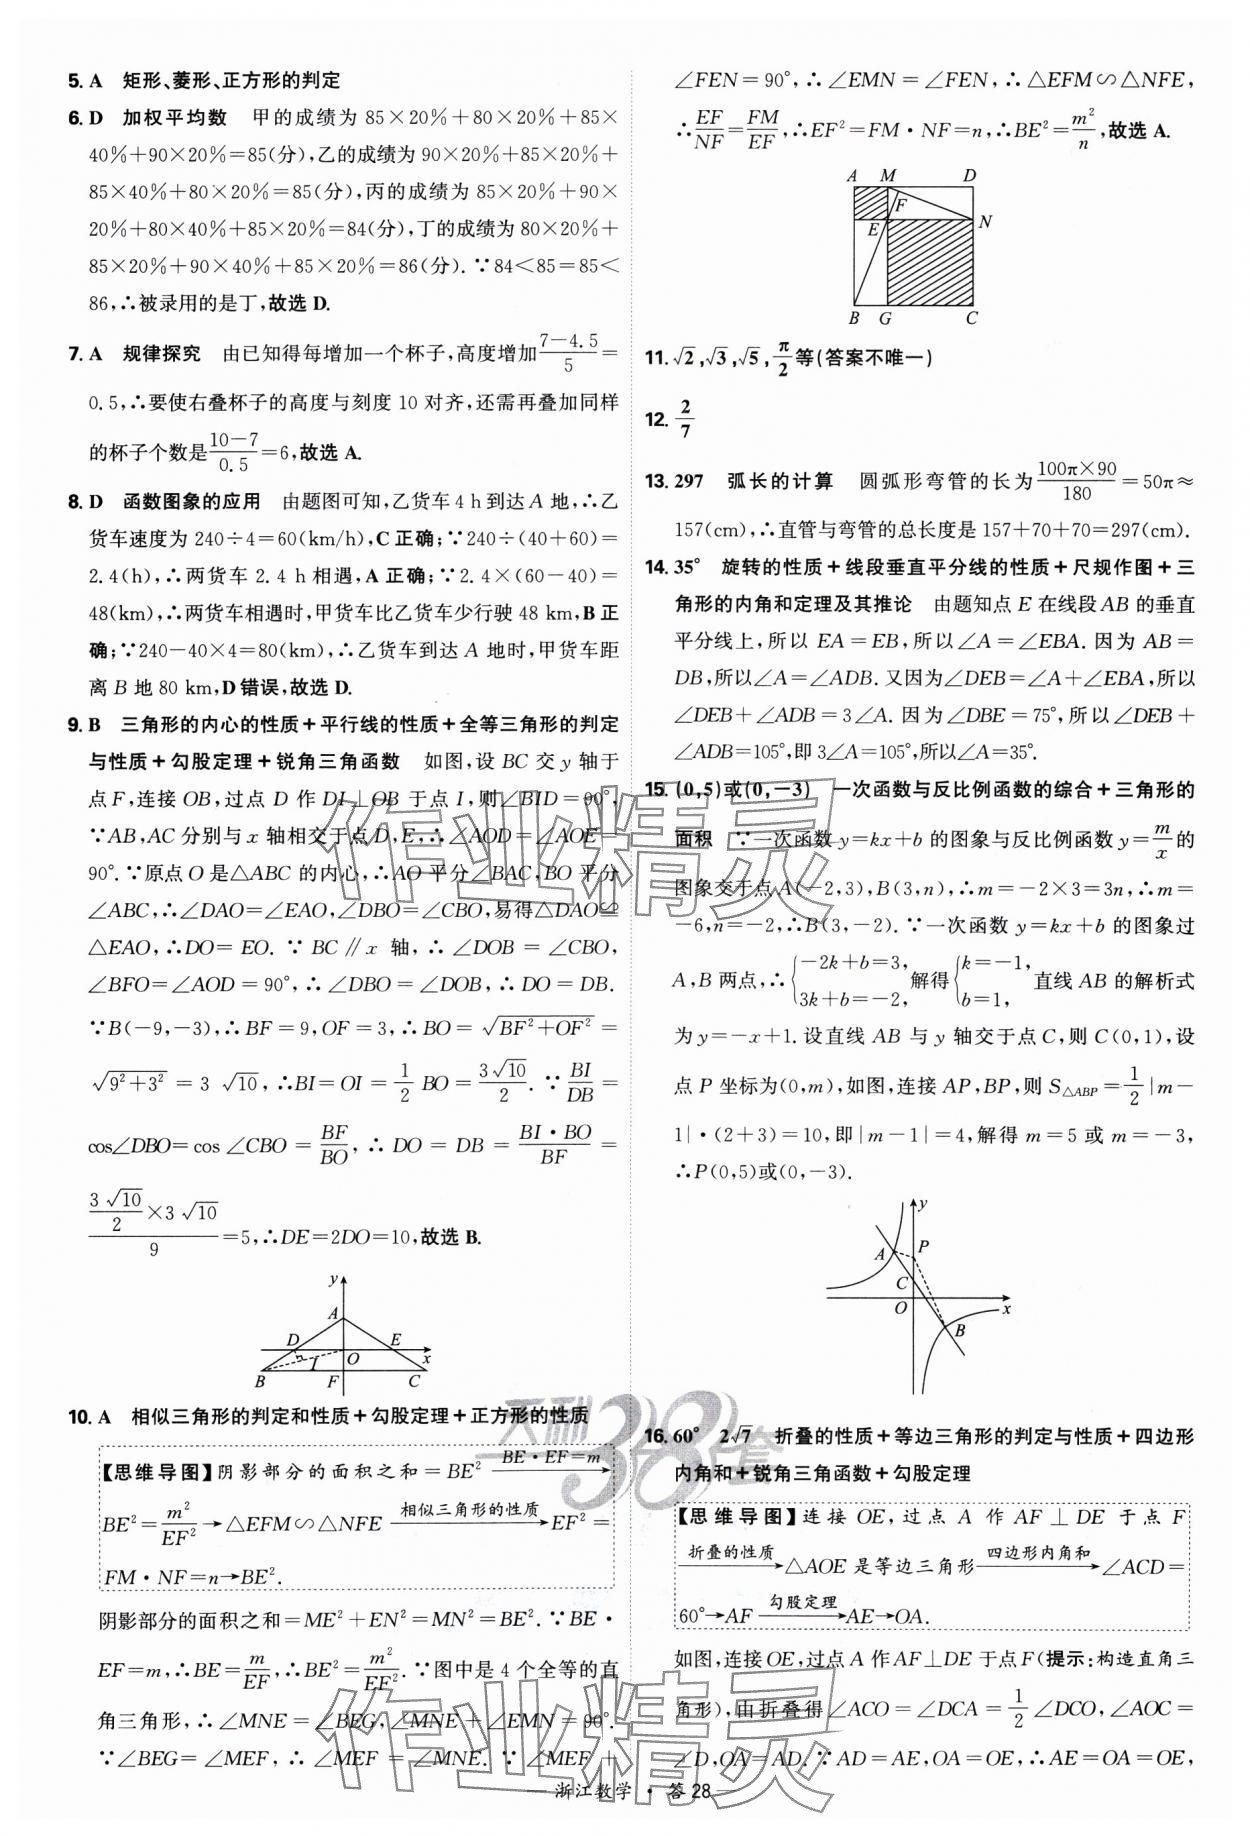 5. A 矩形、菱形、正方形的判定
6. D 加权平均数 甲的成绩为 85×20%+80×20%+85×
40%+90×20%=85(分),乙的成绩为 90×20%+85×20%+
85×40%+80×20%=85(分),丙的成绩为 85×20%+90×
20%+80×40%+85×20%=84(分),丁的成绩为 80×20%+
85×20%+90×40%+85×20%=86(分). ∵84<85=85<
86,∴被录用的是丁,故选 D.
7. A 规律探究 由已知得每增加一个杯子,高度增加(7-4.5)/5=
0.5,∴要使右叠杯子的高度与刻度 10 对齐,还需再叠加同样
的杯子个数是(10-7)/0.5=6,故选 A.
8. D 函数图象的应用 由题图可知,乙货车 4 h 到达 A 地,∴乙
货车速度为 240÷4=60(km/h),C 正确;∵240÷(40+60)=
2.4(h),∴两货车 2.4 h 相遇,A 正确;∵2.4×(60-40)=
48(km),∴两货车相遇时,甲货车比乙货车少行驶 48 km,B 正
确;∵240-40×4=80(km),∴乙货车到达 A 地时,甲货车距
离 B 地 80 km,D 错误,故选 D.
9. B 三角形的内心的性质+平行线的性质+全等三角形的判定
与性质+勾股定理+锐角三角函数 如图,设 BC 交 y 轴于
点 F,连接 OB,过点 D 作 DI⊥OB 于点 I,则∠BID=90°,
∵AB,AC 分别与 x 轴相交于点 D,E,∴∠AOD=∠AOE=
90°. ∵原点 O 是△ABC 的内心,∴AO 平分∠BAC,BO 平分
∠ABC,∴∠DAO=∠EAO,∠DBO=∠CBO,易得△DAO≌
△EAO,∴DO=EO. ∵BC∥x 轴,∴∠DOB=∠CBO,
∠BFO=∠AOD=90°,∴∠DBO=∠DOB,∴DO=DB.
∵B(-9,-3),∴BF=9,OF=3,∴BO=√(BF²+OF²)=
√(9²+3²)=3√10,∴BI=OI=1/2 BO=3√10/2. ∵BI/DB=
cos∠DBO=cos∠CBO=BF/BO,∴DO=DB=BI·BO/BF=
(3√10/2×3√10)/9=5,∴DE=2DO=10,故选 B.
y
A
D E
I O x
B F C
10. A 相似三角形的判定和性质+勾股定理+正方形的性质
【思维导图】阴影部分的面积之和=BE² —BE·EF=m→
BE²=m²/EF²→△EFM∽△NFE —相似三角形的性质→EF²=
FM·NF=n→BE².
阴影部分的面积之和=ME²+EN²=MN²=BE². ∵BE·
EF=m,∴BE=m/EF,∴BE²=m²/EF². ∵图中是 4 个全等的直
角三角形,∴∠MNE=∠BEG,∠MNE+∠EMN=90°.
∵∠BEG=∠MEF,∴∠MEF=∠MNE. ∵∠MEF+
∠FEN=90°,∴∠EMN=∠FEN,∴△EFM∽△NFE,
∴EF/NF=FM/EF,∴EF²=FM·NF=n,∴BE²=m²/n,故选 A.
A M D
F
E N
B G C
11. √2,√3,√5,π/2等(答案不唯一)
12. 2/7
13. 297 弧长的计算 圆弧形弯管的长为(100π×90)/180=50π≈
157(cm),∴直管与弯管的总长度是 157+70+70=297(cm).
14. 35° 旋转的性质+线段垂直平分线的性质+尺规作图+三
角形的内角和定理及其推论 由题知点 E 在线段 AB 的垂直
平分线上,所以 EA=EB,所以∠A=∠EBA. 因为 AB=
DB,所以∠A=∠ADB. 又因为∠DEB=∠A+∠EBA,所以
∠DEB+∠ADB=3∠A. 因为∠DBE=75°,所以∠DEB+
∠ADB=105°,即 3∠A=105°,所以∠A=35°.
15. (0,5)或(0,-3) 一次函数与反比例函数的综合+三角形的
面积 ∵一次函数 y=kx+b 的图象与反比例函数 y=m/x 的
图象交于点 A(-2,3),B(3,n),∴m=-2×3=3n,∴m=
-6,n=-2,∴B(3,-2). ∵一次函数 y=kx+b 的图象过
A,B 两点,∴{-2k+b=3, 3k+b=-2, 解得{k=-1, b=1, 直线 AB 的解析式
为 y=-x+1. 设直线 AB 与 y 轴交于点 C,则 C(0,1),设
点 P 坐标为(0,m),如图,连接 AP,BP,则 S△ABP=1/2|m-
1|·(2+3)=10,即|m-1|=4,解得 m=5 或 m=-3,
∴P(0,5)或(0,-3).
y
A P
C
O x
B
16. 60° 2√7 折叠的性质+等边三角形的判定与性质+四边形
内角和+锐角三角函数+勾股定理
【思维导图】连接 OE,过点 A 作 AF⊥DE 于点 F
—折叠的性质→△AOE 是等边三角形—四边形内角和→∠ACD=
60°→AF —勾股定理→AE→OA.
如图,连接 OE,过点 A 作 AF⊥DE 于点 F(提示:构造直角三
角形),由折叠得∠ACO=∠DCA=1/2∠DCO,∠AOC=
∠D,OA=AD. ∵AD=AE,OA=OE,∴AE=OA=OE,
天利38套
作业精灵
作业精灵
浙江数学 · 答 28